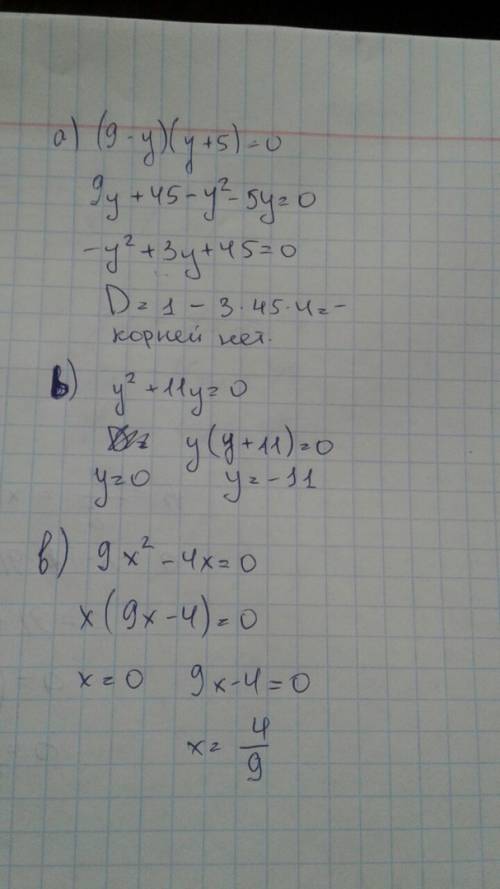 а) (9-y)(y+5)=0
9y+45-y²-5y=0
-y²+3y+45=0
D=1-3·45·4=-
корней нет.
b) y²+11y=0
y(y+11)=0
y=0 y=-11
в) 9x²-4x=0
x(9x-4)=0
x=0 9x-4=0
x= 4/9